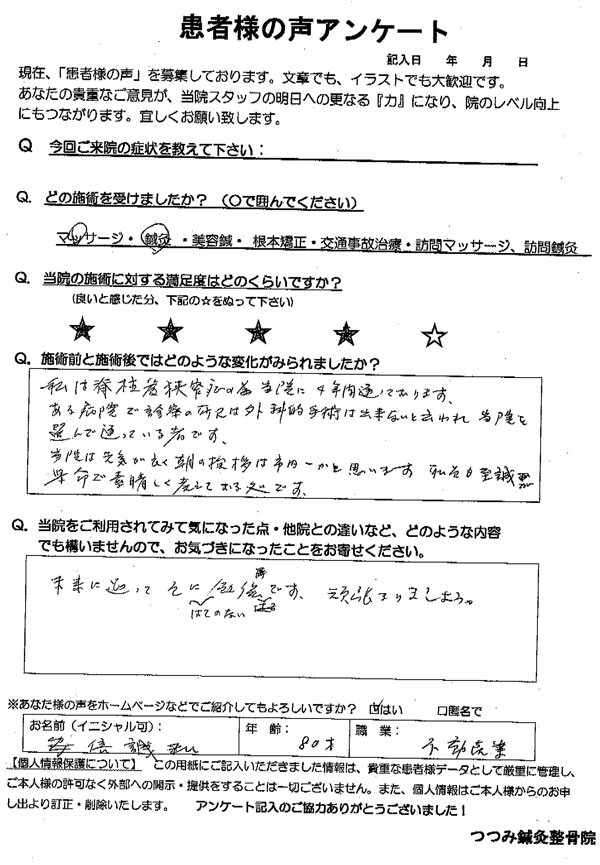 患者様の声アンケート
記入日　年　月　日
現在、「患者様の声」を募集しております。文章でも、イラストでも大歓迎です。
あなたの貴重なご意見が、当院スタッフの明日への更なる『力』になり、院のレベル向上
にもつながります。宜しくお願い致します。
Q 今回ご来院の症状を教えて下さい：
Q. どの施術を受けましたか？（〇で囲んでください）
マッサージ・鍼灸・美容鍼・根本矯正・交通事故治療・訪問マッサージ、訪問鍼灸
Q. 当院の施術に対する満足度はどのくらいですか？
（良いと感じた分、下記の☆をぬって下さい）
★ ★ ★ ★ ☆
Q. 施術前と施術後ではどのような変化がみられましたか？
私は脊柱管狭窄症の為当院に4年間通っております。
ある病院で診療の所見は外科的手術は出来ないと云われ 当院を
選んで通っている者です。
当院は元気が良く朝の挨拶は市内一かと思います
で素晴しく
です。
Q. 当院をご利用されてみて気になった点・他院との違いなど、どのような内容
でも構いませんので、お気づきになったことをお寄せください。
未来に です。頑張りましょう。
はてのない
※あなた様の声をホームページなどでご紹介してもよろしいですか？ ☑はい □匿名で
お名前（イニシャル可）： 年 齢： 職 業：
80才
【個人情報保護について】 この用紙にご記入いただきました情報は、貴重な患者様データとして厳重に管理し、
ご本人様の許可なく外部への開示・提供をすることは一切ございません。また、個人情報はご本人様からのお申
し出より訂正・削除いたします。 アンケート記入のご協力ありがとうございました！
つつみ鍼灸整骨院